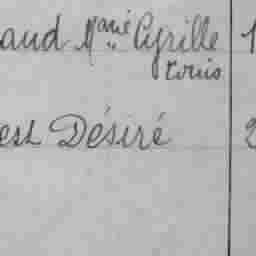 aud Marie Cyrille 1
Louis
est Désiré 2